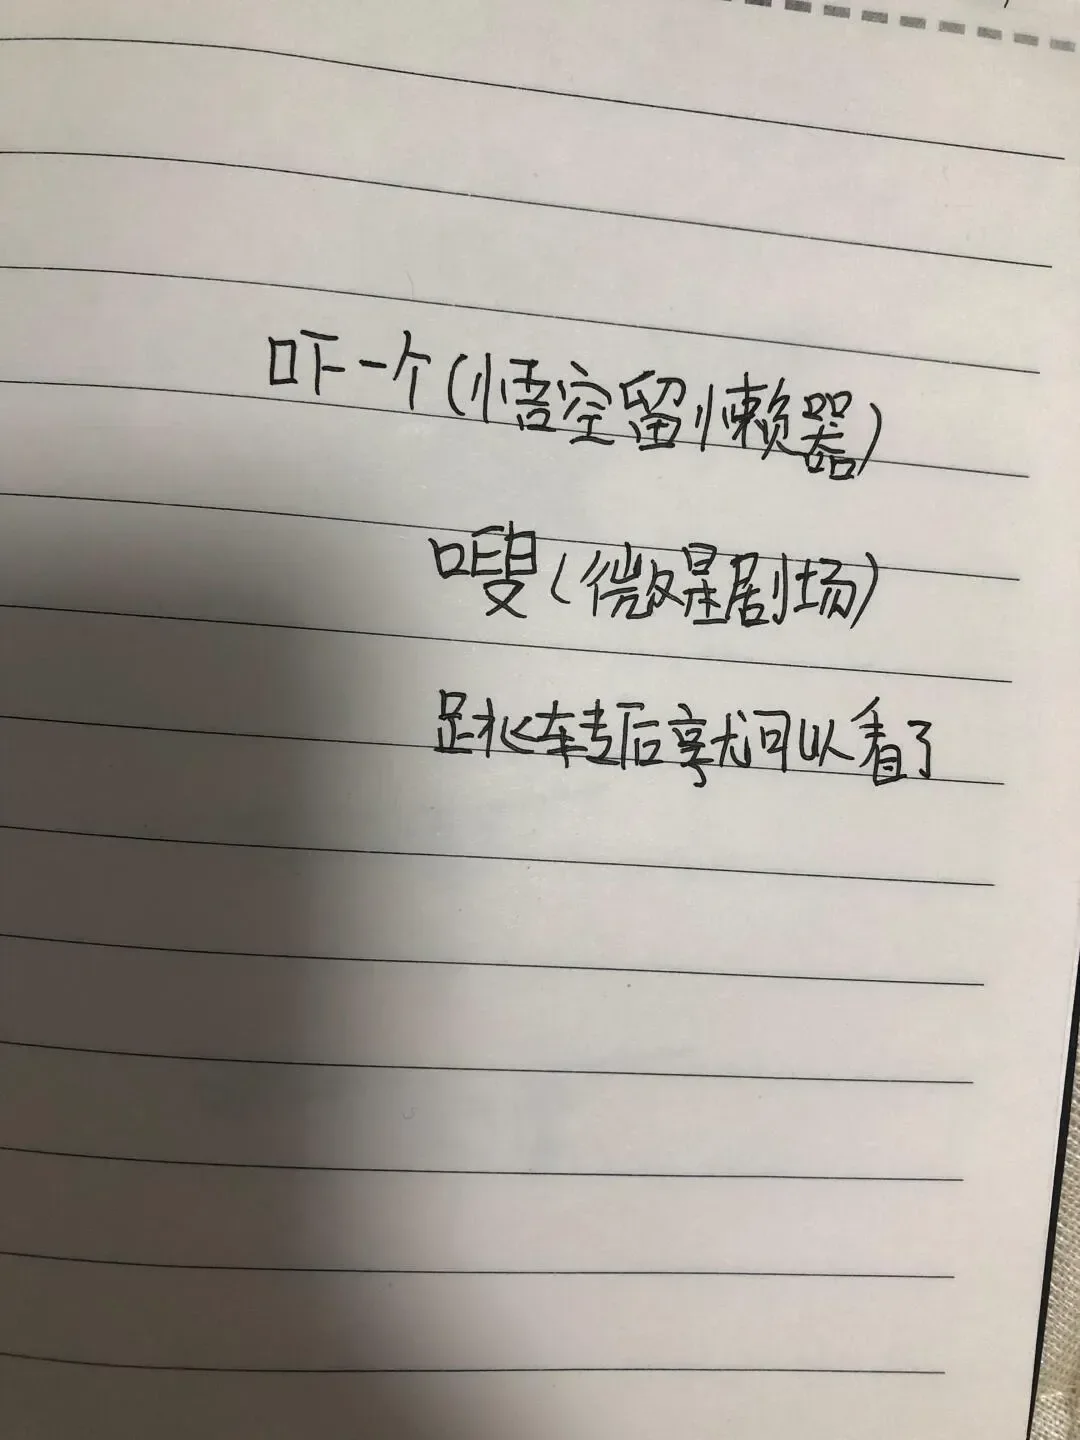 吓一个(悟空留懒器)
嗖(微星剧场)
跳转后就可以看了